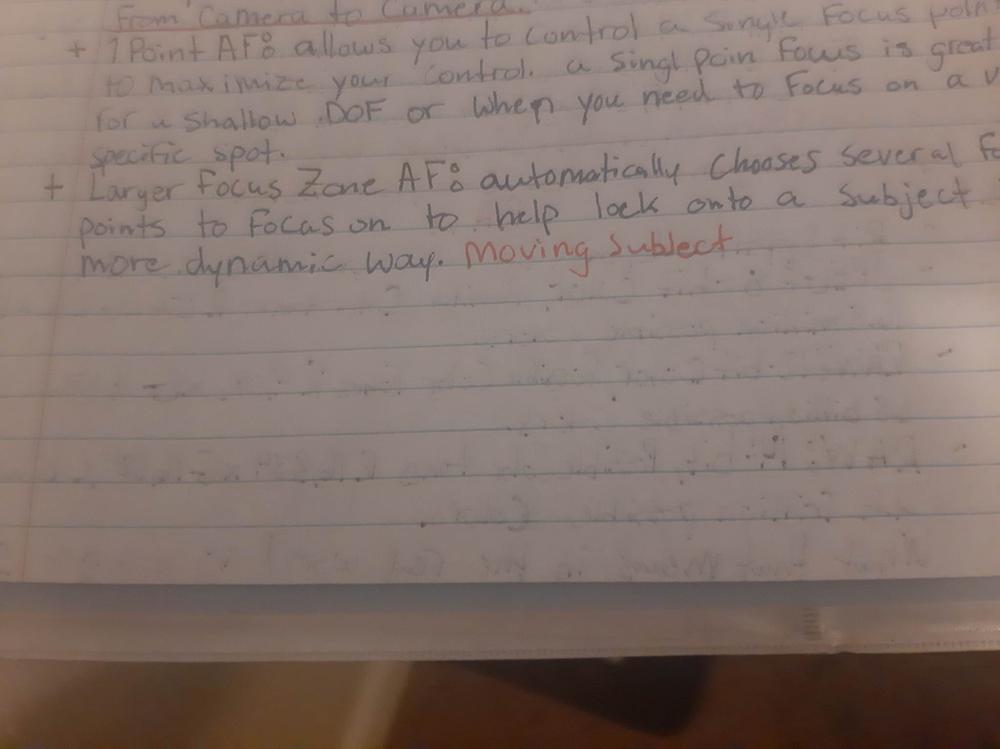 From Camera to Camera.
+ 1 Point AF: allows you to control a single Focus poin
to maximize your control. a singl poin Focus is great
for a shallow DOF or when you need to Focus on a
specific spot.
+ Larger Focus Zone AF: automatically Chooses several
points to Focus on to help lock onto a Subject
more dynamic way. Moving Subject